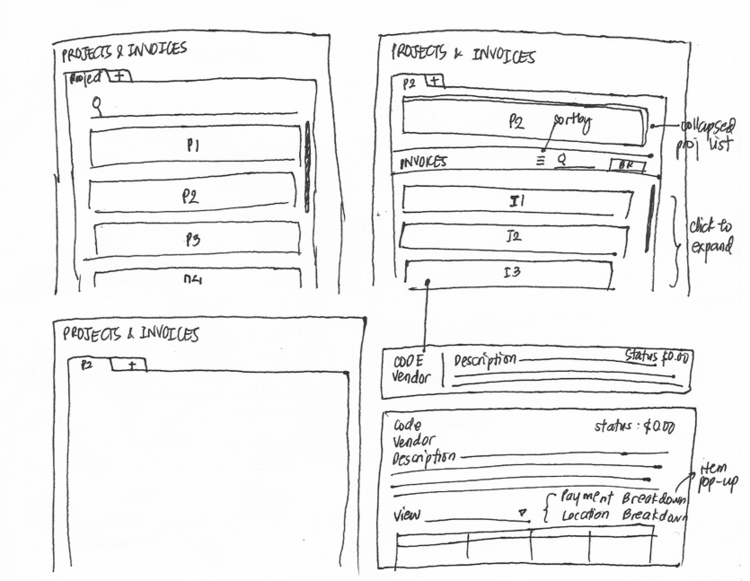 PROJECTS & INVOICES
Project +
P1
P2
P3
P4
PROJECTS & INVOICES
P2 +
P2
sortby
collapsed
proj list
INVOICES
I1
I2
I3
click to
expand
PROJECTS & INVOICES
P2 +
CODE
Vendor
Description
Status $0.00
Code
Vendor
Description
status: $0.00
item
pop-up
View
Payment Breakdown
Location Breakdown